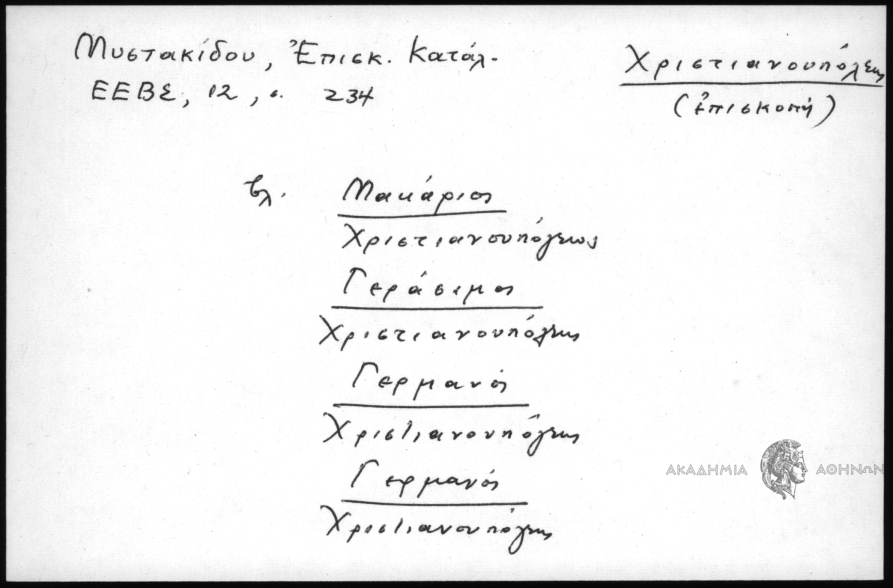 Μυστακίδου, Ἐπισκ. Κατάλ.
ΕΕΒΣ, 12, σ. 234
Χριστιανουπόλεως
(Ἐπισκοπή)
βλ. Μακάριος
Χριστιανουπόλεως
Γεράσιμος
Χριστιανουπόλεως
Γερμανός
Χριστιανουπόλεως
Γερμανός
Χριστιανουπόλεως
ΑΚΑΔΗΜΙΑ ΑΘΗΝΩΝ